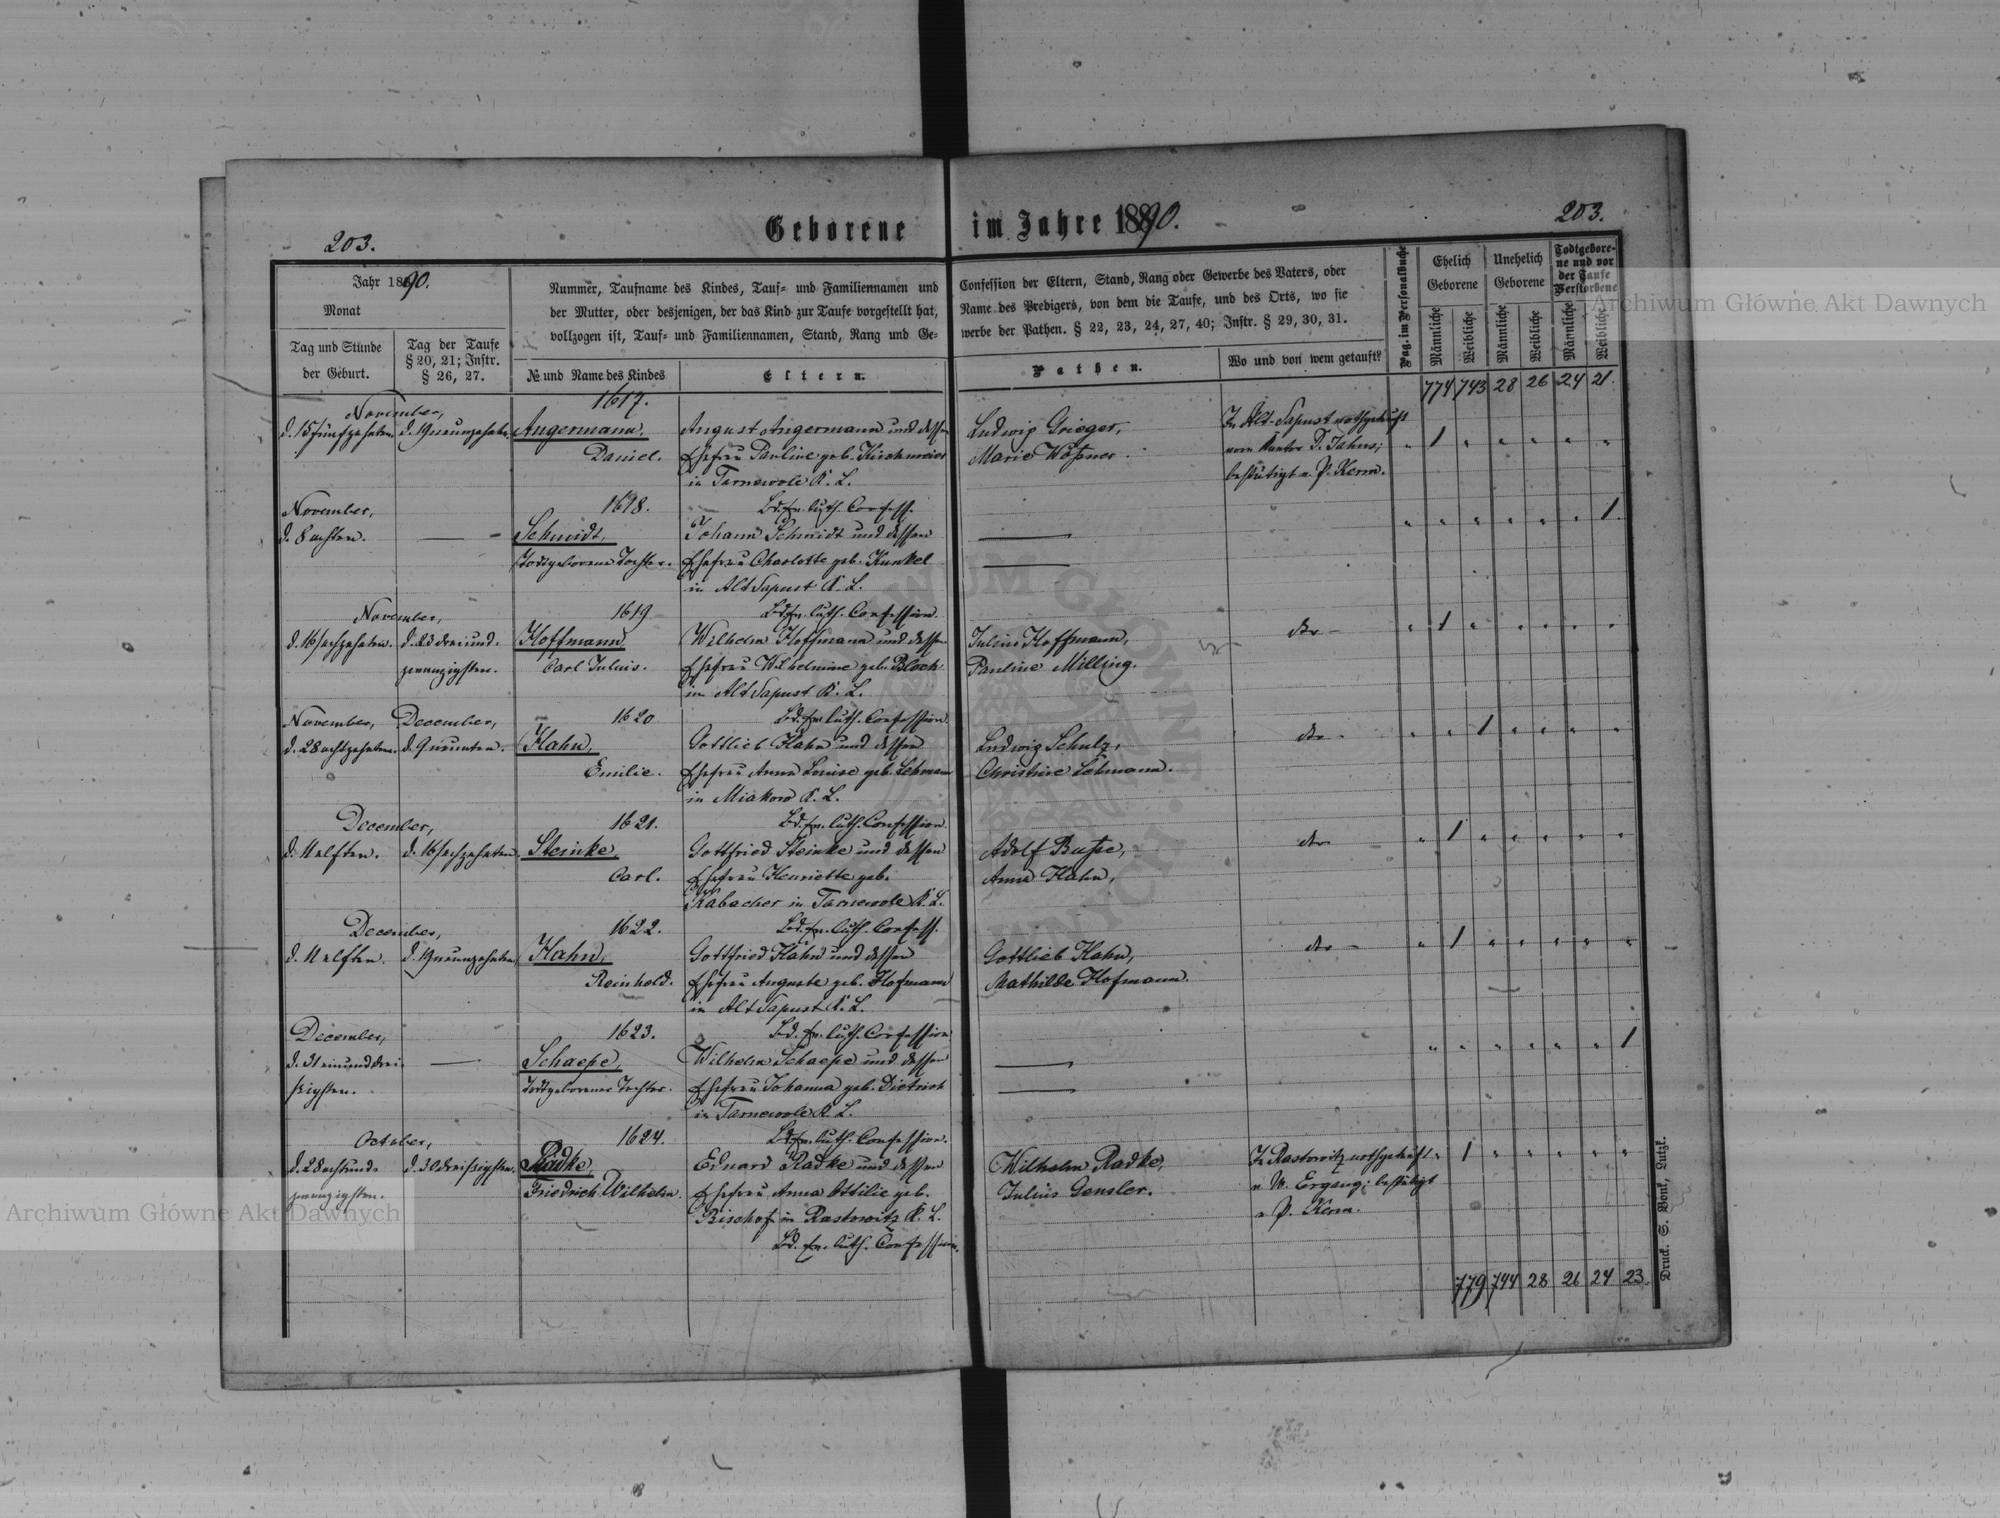 Geborene im Jahre 1890.
203.
203.
Jahr 1890.
Monat
Tag und Stunde
der Geburt.
Tag der Taufe
§ 20, 21; Instr.
§ 26, 27.
Nummer, Taufname des Kindes, Tauf- und Familiennamen und
der Mutter, oder desjenigen, der das Kind zur Taufe vorgestellt hat,
vollzogen ist, Tauf- und Familiennamen, Stand, Rang und Ge-
№ und Name des Kindes
Eltern.
Confession der Eltern, Stand, Rang oder Gewerbe des Vaters, oder
Name des Predigers, von dem die Taufe, und des Orts, wo sie
werbe der Pathen. § 22, 23, 24, 27, 40; Instr. § 29, 30, 31.
Pathen.
Wo und von wem getauft?
Pag. im Personalbuche
Ehelich
Geborene
Unehelich
Geborene
Todtgebore-
ne und vor
der Taufe
Verstorbene
Männliche
Weibliche
Männliche
Weibliche
Männliche
Weibliche
774 743 28 26 24 21.
November,
d. 15 fünfzehnten. d. 19 neunzehnten.
1617.
Angermann,
Daniel.
August Angermann und dessen
Ehefrau Pauline geb. Kirchmeier
in Tarnewole K. L.
Bd. ev. luth. Confess.
Ludwig Grieger,
Marie Wößner.
In Alt-Sapust nothgetauft
vom Kantor D. Jahns;
bestätigt v. P. Kerm.
" 1 " " " " "
November,
d. 8 achten. —
1618.
Schmidt,
Todtgeborene Tochter.
Johann Schmidt und dessen
Ehefrau Charlotte geb. Kunkel
in Alt Sapust K. L.
Bd. ev. luth. Confession
" " " " " " 1.
November,
d. 16 sechzehnten. d. 23 dreiund-
zwanzigsten.
1619
Hoffmann,
Carl Julius.
Wilhelm Hoffmann und dessen
Ehefrau Wilhelmine geb. Bloch
in Alt Sapust K. L.
Bd. ev. luth. Confession
Julius Hoffmann,
Pauline Milling.
dto
" 1 " " " " "
November, December,
d. 28 achtzehnten. d. 9 neunten.
1620
Hahn,
Emilie.
Gottlieb Hahn und dessen
Ehefrau Anna Louise geb. Lehmann
in Miakow K. L.
Bd. ev. luth. Confession
Ludwig Schulz,
Christine Lehmann.
dto
" " 1 " " " "
December,
d. 11 elften. d. 16 sechzehnten
1621.
Steinke,
Carl.
Gottfried Steinke und dessen
Ehefrau Henriette geb.
Rabacher in Tarnewole K. L.
Bd. ev. luth. Confess.
Adolf Buße,
Anna Hahn,
dto
" 1 " " " " "
December,
d. 11 elften. d. 19 neunzehnten
1622.
Hahn,
Reinhold.
Gottfried Hahn und dessen
Ehefrau Auguste geb. Hofmann
in Alt Sapust K. L.
Bd. ev. luth. Confession
Gottlieb Hahn,
Mathilde Hofmann.
dto
" 1 " " " " "
December,
d. 31 einunddrei-
ßigsten.
—
1623.
Schaepe,
Todtgeborener Tochter.
Wilhelm Schaepe und dessen
Ehefrau Johanna geb. Dietrich
in Tarnewole K. L.
Bd. ev. luth. Confession.
" " " " " " 1
October,
d. 28 achtund-
zwanzigsten.
d. 30 dreißigsten.
1624.
Radke,
Friedrich Wilhelm.
Eduard Radke und dessen
Ehefrau Anna Ottilie geb.
Bischof in Rastowitz K. L.
Bd. ev. luth. Confession.
Wilhelm Radke,
Julius Gensler.
In Rastowitz nothgetauft
v. W. Ergang; bestätigt
v. P. Kerm.
" 1 " " " " "
779 744 28 26 24 23.
Druck. S. Bonk, Lutzk.
Archiwum Główne Akt Dawnych
Archiwum Główne Akt Dawnych